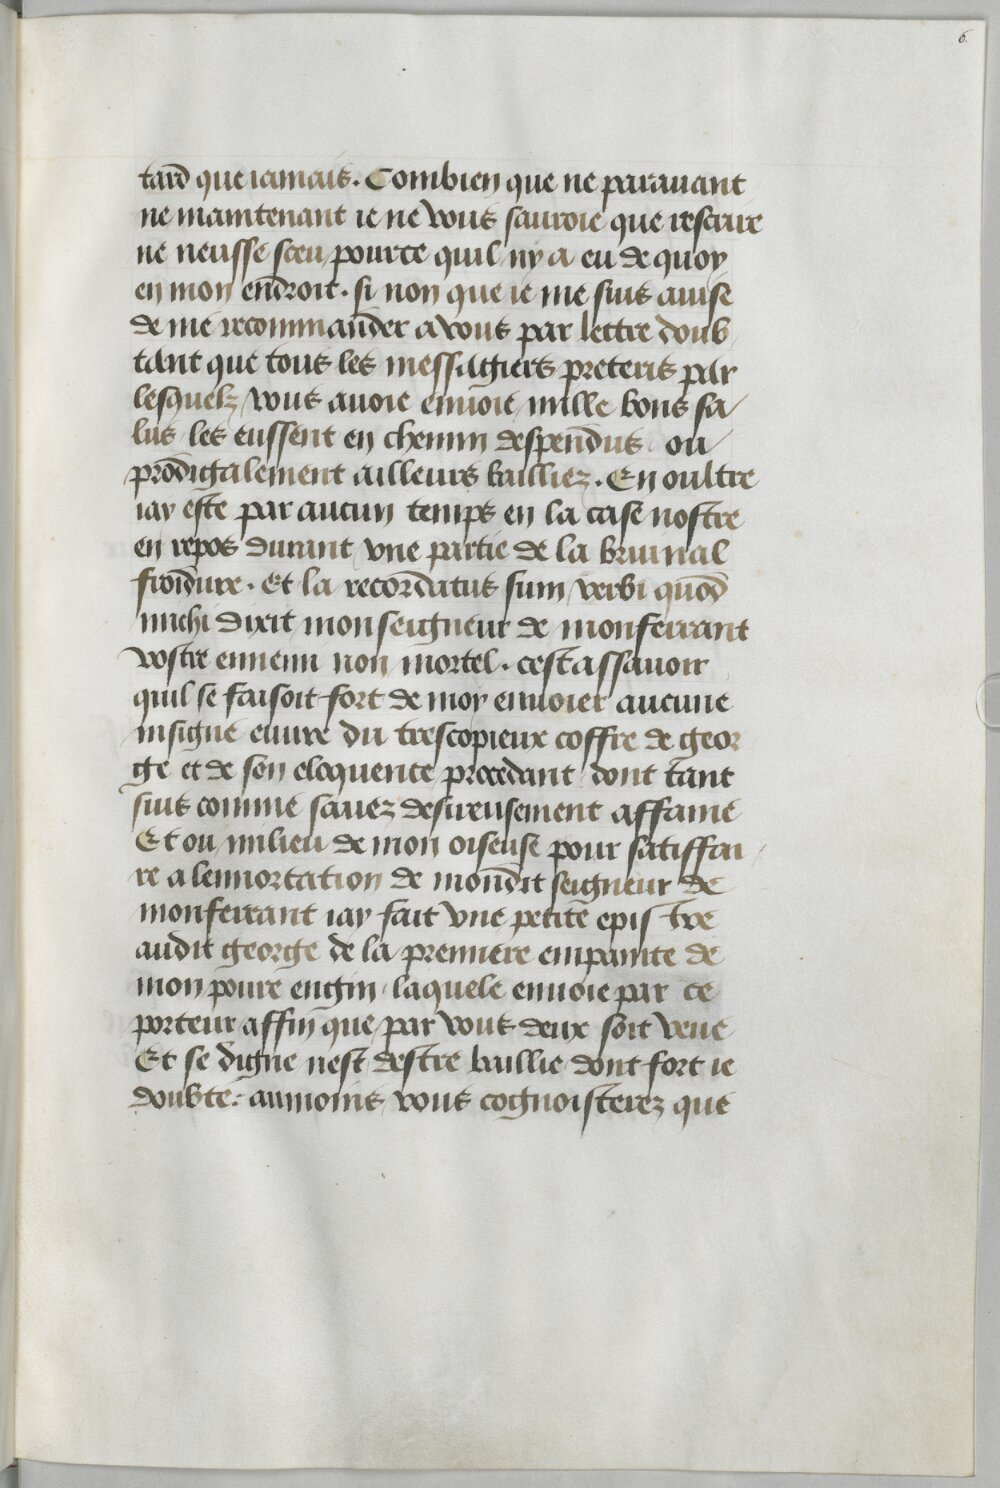 6.
tard que iamais. Combien que ne parauant
ne maintenant ie ne vous sauroie que rescrire
ne neusse sceu pource quil ny a eu de quoy
en mon endroit. si non que ie me suis auise
de me recommander a vous par lettre doub
tant que tous les messagiers preteris par
lesquelz vous auoie enuoie mille bons sa
lus les eussent en chemin despendus ou
prodigalement ailleurs bailliez. En oultre
iay este par aucun temps en la case nostre
en repos durant vne partie de la bruinal
froidure. Et la recordatus sum verbi quod
michi dixit monseigneur de monferrant
vostre ennemi non mortel. cestassauoir
quil se faisoit fort de moy enuoier aucune
insigne euure du trescopieux coffre de geor
ge et de son eloquence procedant dont tant
suis comme sauez desireusement affame
Et ou milieu de mon oiseuse pour satiffai
re a lennortation de mondit seigneur de
monferrant iay fait vne petite epistre
audit george de la premiere empainte de
mon poure engin laquele enuoie par ce
porteur affin que par vous deux soit veue
Et se digne nest destre baillie dont fort ie
doubte: aumoins vous cognoisterez que